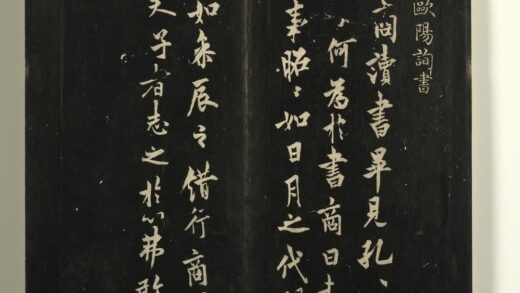 歐陽詢書
商讀書畢見孔〻
何為於書商曰
事昭〻如日月之代
如叅辰之錯行商
夫子者志之於心弗敢